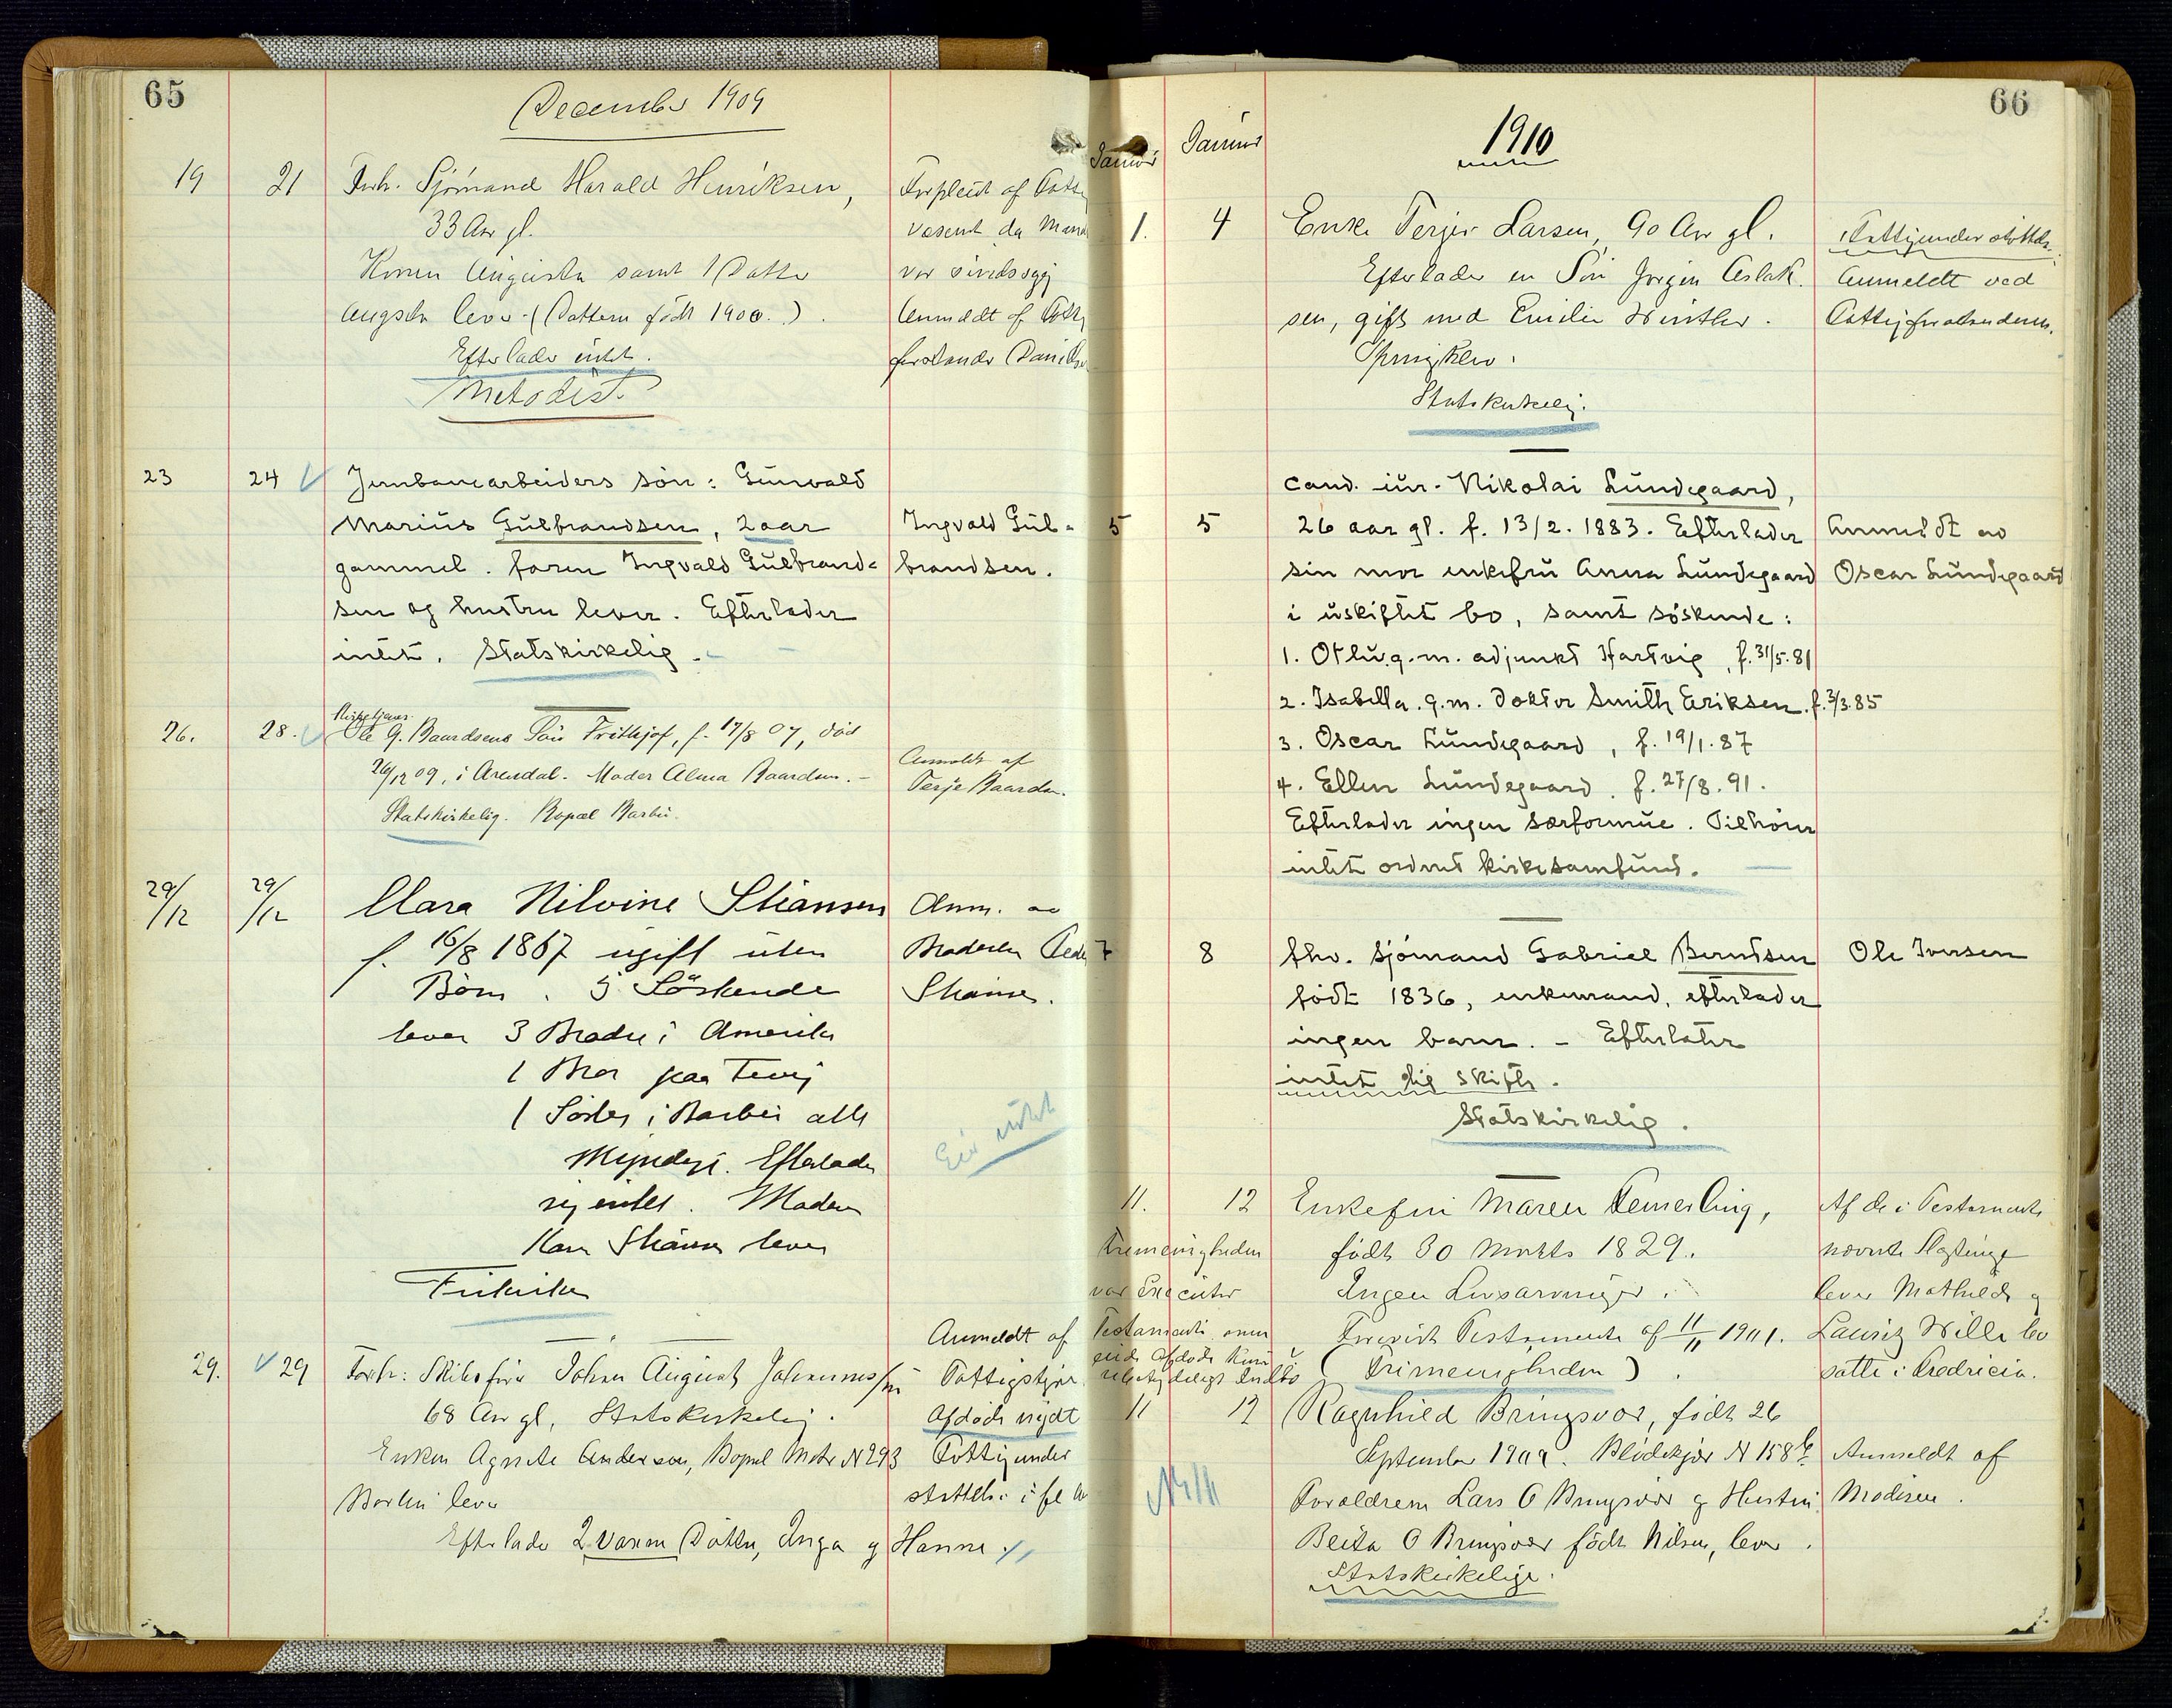 65
December 1909
19 21 Forh. Sjømand Harald Henriksen,
33 Aar gl.
Konen Augusta samt 1 Datter
Augusta lever (Datteren født 1900.)
Efterlader intet.
Metodist.
Forpleiet af Fattig
væsenet da Manden
var
Anmeldt af Fattig
forstander Danielsen
23 24 Jernbanearbeiders søn: Gunvald
Marius Gulbrandsen, 2 aar
gammel. faren Ingvald Gulbrand-
sen og hustru lever. Efterlader
intet. Statskirkelig.
Ingvald Gul-
brandsen.
26. 28. Kirketjener
Ole G. Baardsens Søn Frithjof, f. 17/8 07, død
26/12 09, i Arendal. Moder Alma Baardsen.
Statskirkelig. Bopæl Barbu.
Anmeldt af
Terje Baardsen.
29/12 29/12 Clara Nilvine Stiansen
f. 16/8 1867 ugift uten
Børn. 5 Söskende
lever 3 Brødre i Amerika
1 Bror paa
1 Söster i Barbu alle
Myndige. Efterlader
sig intet. Moderen
Karen Stiansen lever
Frikirken
Anm. av
Broderen Peder
Stiansen.
Eier intet
29. 29 Forh: Skibsfører Johan August Johannessen
68 Aar gl, Statskirkelig.
Enken Agnete Anderson, Bopæl N 293
Barbu lever
Efterlader 2 voxne Døttre, Inga og Hanne
Anmeldt af
Fattigstyre
Afdøde nydt
Fattigunder
støttelse i fl Aar
66
Januar Januar
1910
1. 4 Enke Terjer Larsen, 90 Aar gl.
Efterlader en Søn Jørgen Aslak-
sen, gift med Emilie Winther.
Springkler.
Statskirkelig.
Fattigunderstøttelse.
Anmeldt ved
Fattigforstanderen.
5 5 cand. iur. Nikolai Lundegaard,
26 aar gl. f. 13/2. 1883. Efterlader
sin mor enkefru Anna Lundegaard
i uskiftet bo, samt søskende:
1. Otlu g.m. adjunkt Hartvig, f. 31/5. 81
2. Isabella g.m. doktor Smith Eriksen. f. 3/3. 85
3. Oscar Lundegaard, f. 19/1. 87
4. Ellen Lundegaard. f. 27/8. 91.
Efterlader ingen særformue. Tilhører
intet ordnet kirkesamfund.
Anmeldt av
Oscar Lundegaard
7 8 fhv. sjømand Gabriel Berntsen
født 1836, enkemand, efterlader
ingen barn. - Efterlater
intet dig skifte.
Statskirkelig.
Ole Iversen
11. 12 Enkefru Maren Temerling,
født 30 Marts 1829.
Ingen Livsarvinger.
Testamente af 11/11 1901.
(Frimenigheden)
Frimenigheden
var Executor
Testamente
Af de i Testamente
nævnte Slægtninge
lever Mathilde og
Lauritz Wille bo
satte i Fredricia.
11 12 Ragnhild Bringsvor, født 26
September 1909. Blødekjær N 158 b
Forældrene Lars O Bringsvor og Hustru
Berta O Bringsvor født Nilsen, lever.
Statskirkelige.
Anmeldt af
Moderen.